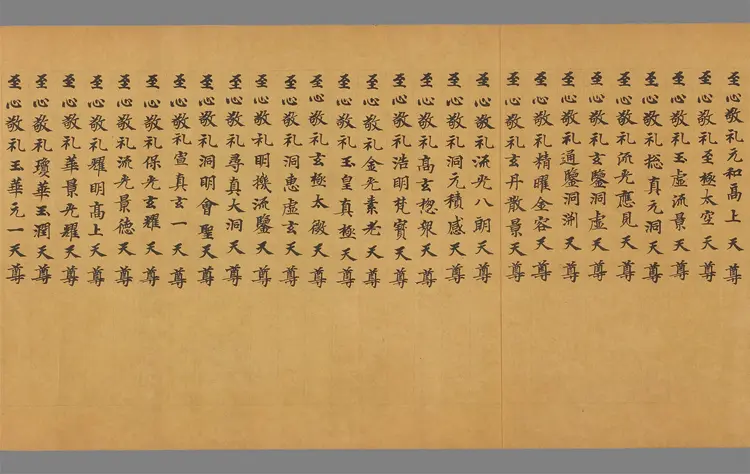 至心敬礼元和高上天尊
至心敬礼至極太空天尊
至心敬礼玉虚流景天尊
至心敬礼捴真元洞天尊
至心敬礼流光應見天尊
至心敬礼玄鑒洞虚天尊
至心敬礼通鑒洞渕天尊
至心敬礼精曜金容天尊
至心敬礼玄丹散景天尊
至心敬礼流光八朗天尊
至心敬礼洞元積感天尊
至心敬礼高玄揔衆天尊
至心敬礼浩明梵寳天尊
至心敬礼金光素老天尊
至心敬礼玉皇真極天尊
至心敬礼玄極太敬天尊
至心敬礼洞惠虚玄天尊
至心敬礼明機流鑒天尊
至心敬礼尋真大洞天尊
至心敬礼洞明會聖天尊
至心敬礼宣真玄一天尊
至心敬礼保光玄耀天尊
至心敬礼流光景德天尊
至心敬礼耀明高上天尊
至心敬礼華景光耀天尊
至心敬礼瓊華玉潤天尊
至心敬礼玉華元一天尊